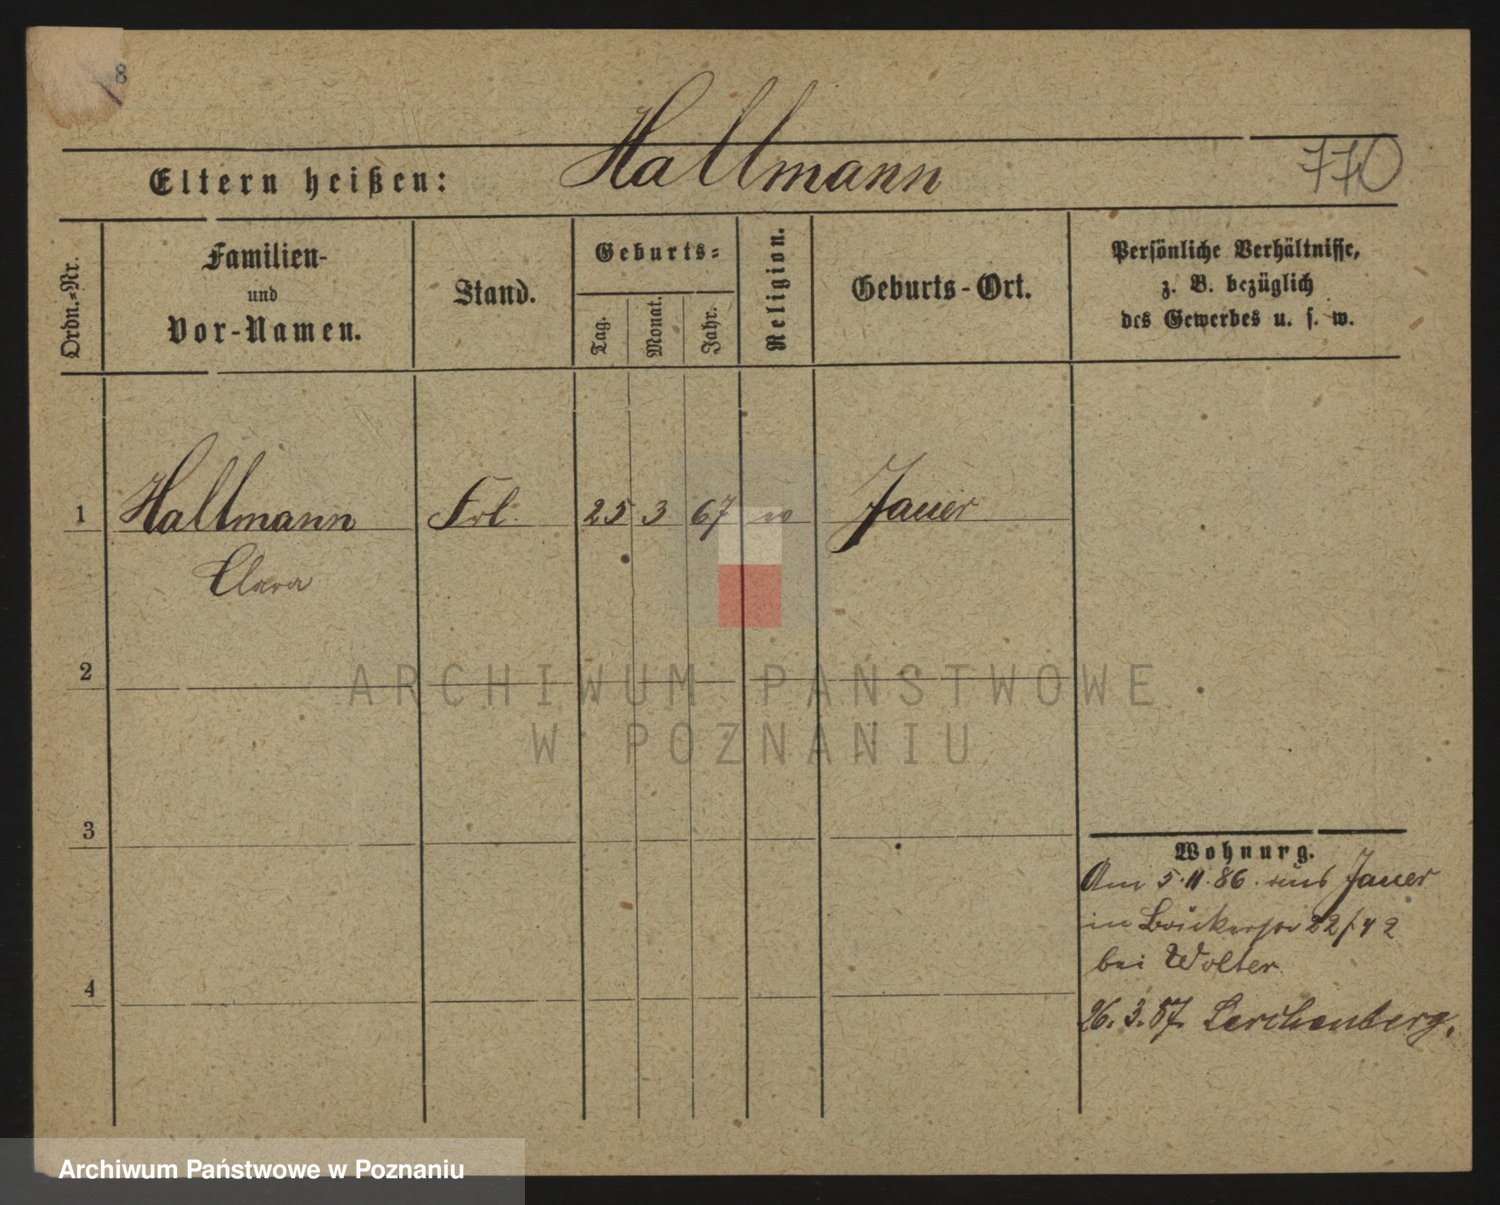 8
Eltern heißen: Hallmann 770
Ordn.-Nr.
Familien-
und
Vor-Namen.
Stand.
Geburts-
Tag.
Monat.
Jahr.
Religion.
Geburts-Ort.
Persönliche Verhältnisse,
z. B. bezüglich
des Gewerbes u. s. w.
1 Hallmann Frl. 25 3 67 Jauer
Clara
2
ARCHIWUM PAŃSTWOWE
W POZNANIU
3
Wohnung.
Am 5.11.86. aus Jauer
in 22/42
bei Wolter
4
26.3.87. Lerchenberg.
Archiwum Państwowe w Poznaniu